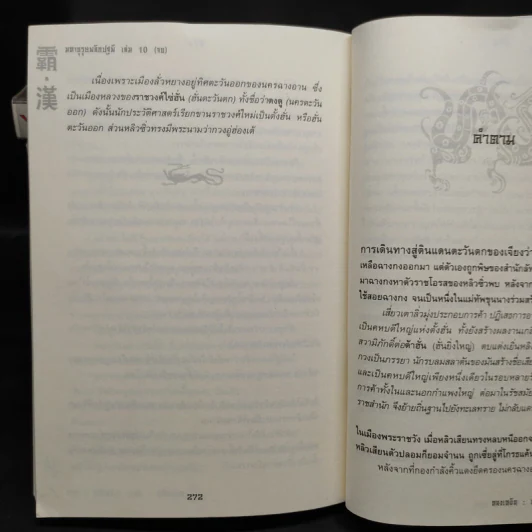 霸·漢
มหาบุรุษพลิกปฐพี เล่ม 10 (จบ)
เนื่องเพราะเมืองลั่วหยางอยู่ทิศตะวันออกของนครฉางอาน ซึ่ง
เป็นเมืองหลวงของราชวงศ์ไซ่ฮั่น (ฮั่นตะวันตก) ทั้งชื่อว่าตงตู (นครตะวัน
ออก) ดังนั้นนักประวัติศาสตร์เรียกขานราชวงศ์ใหม่เป็นตั้งฮั่น หรือฮั่น
ตะวันออก ส่วนหลิวซิ่วทรงมีพระนามว่ากวงอู่ฮ่องเต้
272
คำตาม
การเดินทางสู่ดินแดนตะวันตกของเจียงว่
เหลือฉางกงออกมา แต่ตัวเองถูกพิษของสำนัก
มาฉางกงหาตัวราชโอรสของหลิวซิ่วพบ หลังจาก
ใช้สอยฉางกง จนเป็นหนึ่งในแม่ทัพขุนนางร่วมสร้
เสี่ยวเตาลิ่วมุ่งประกอบการค้า ปฏิเสธการอ
เป็นคหบดีใหญ่แห่งตั้งฮั่น ทั้งยังสร้างผลงานเกล
สวามิภักดิ์ต่อต้าฮั่น (ฮั่นยิ่งใหญ่) ตบแต่งเย็นหลิ
กวงเป็นภรรยา นักรบลมสลาตันของมันสร้างชื่อเสีย
และเป็นคหบดีใหญ่เพียงหนึ่งเดียวในรอบหลายร้
การค้าทั้งในและนอกกำแพงใหญ่ ต่อมาในรัชสมัย
ราชสำนัก จึงย้ายถิ่นฐานไปยังทะเลทราย ไม่กลับแด
ในเมืองพระราชวัง เมื่อหลิวเสียนทรงหลบหนีออกจ
หลิวเสียนตัวปลอมก็ยอมจำนน ถูกเซี่ยลู่ที่โกรธแค้น
หลังจากที่กองกำลังคิ้วแดงยึดครองนครฉางอ